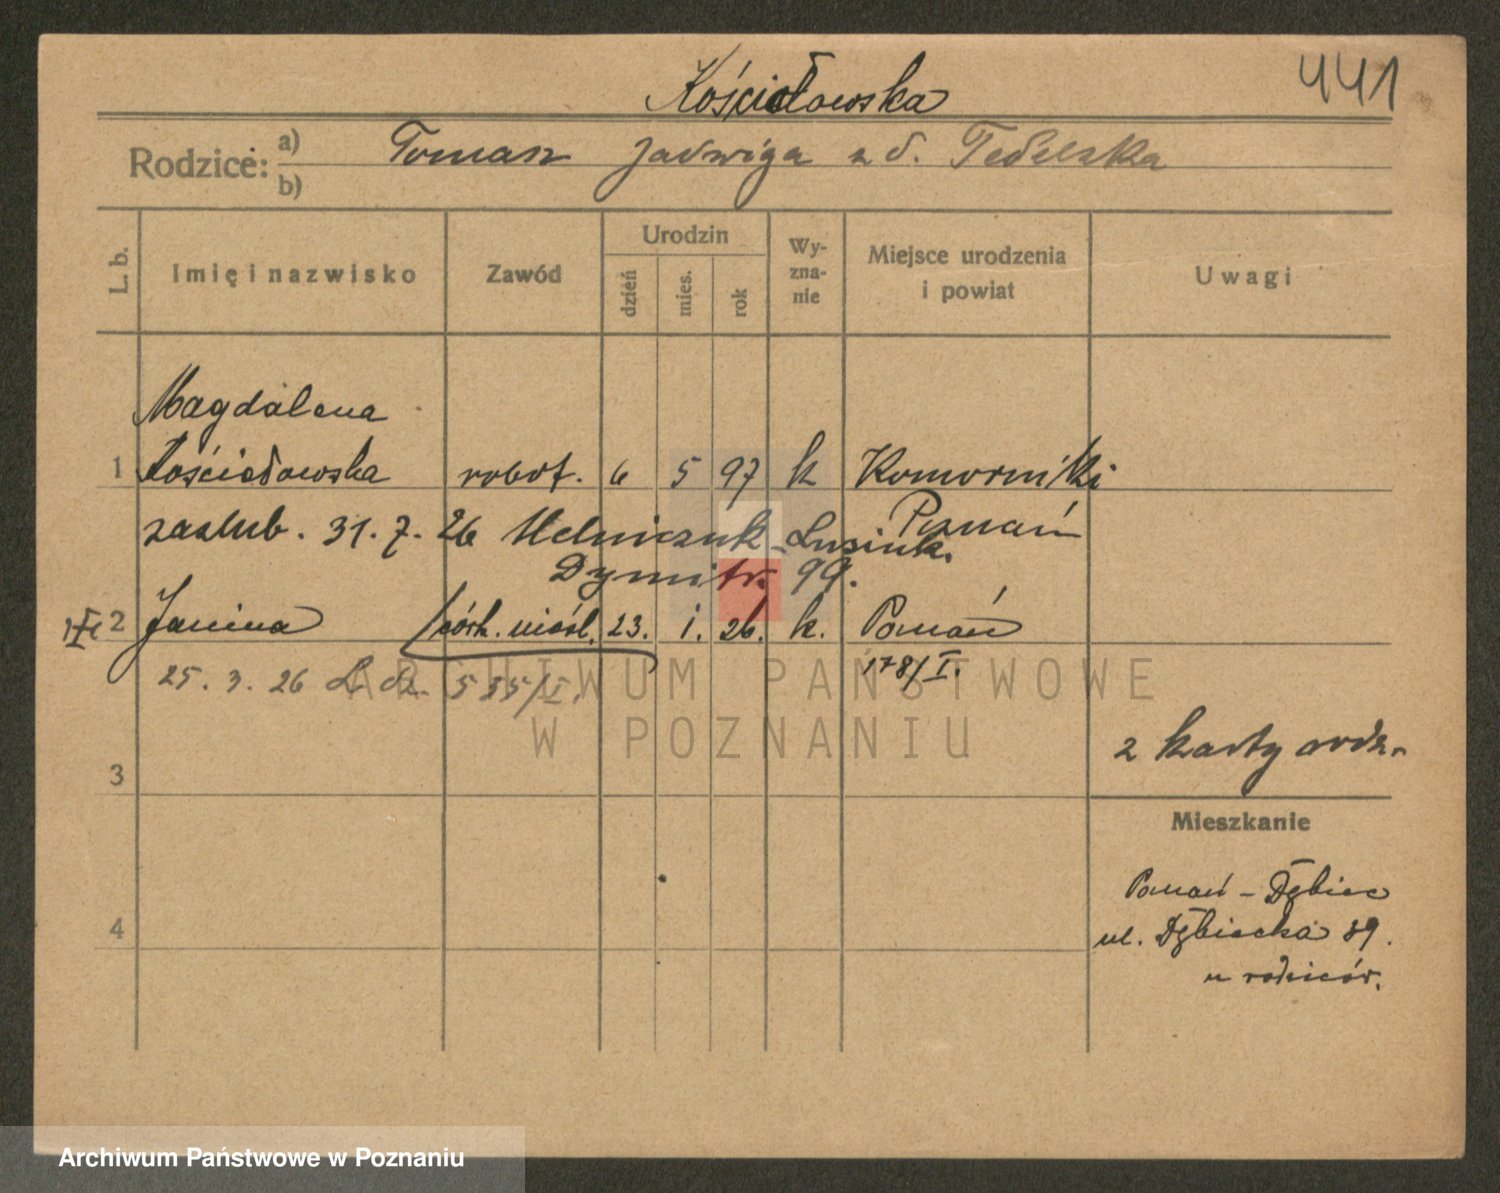 441
Kościołowska
Rodzice: a) Tomasz Jadwiga z d.
b)
L. b. Imię i nazwisko Zawód Urodzin dzień mies. rok Wyznanie Miejsce urodzenia i powiat Uwagi
Magdalena
1 Kościołowska robot. 6 5 97 k Komorniki
Poznań
zaślub. 31. 7. 26 Melniczuk -
Dymitr. 99.
2 Janina córk. nieśl. 23. 1. 26. k. Poznań
25. 3. 26 535/I. 178/I.
ARCHIWUM PAŃSTWOWE
W POZNANIU
2 karty
3
Mieszkanie
Poznań - Dębiec
4
ul. Dębiecka 39.
u rodziców.
Archiwum Państwowe w Poznaniu